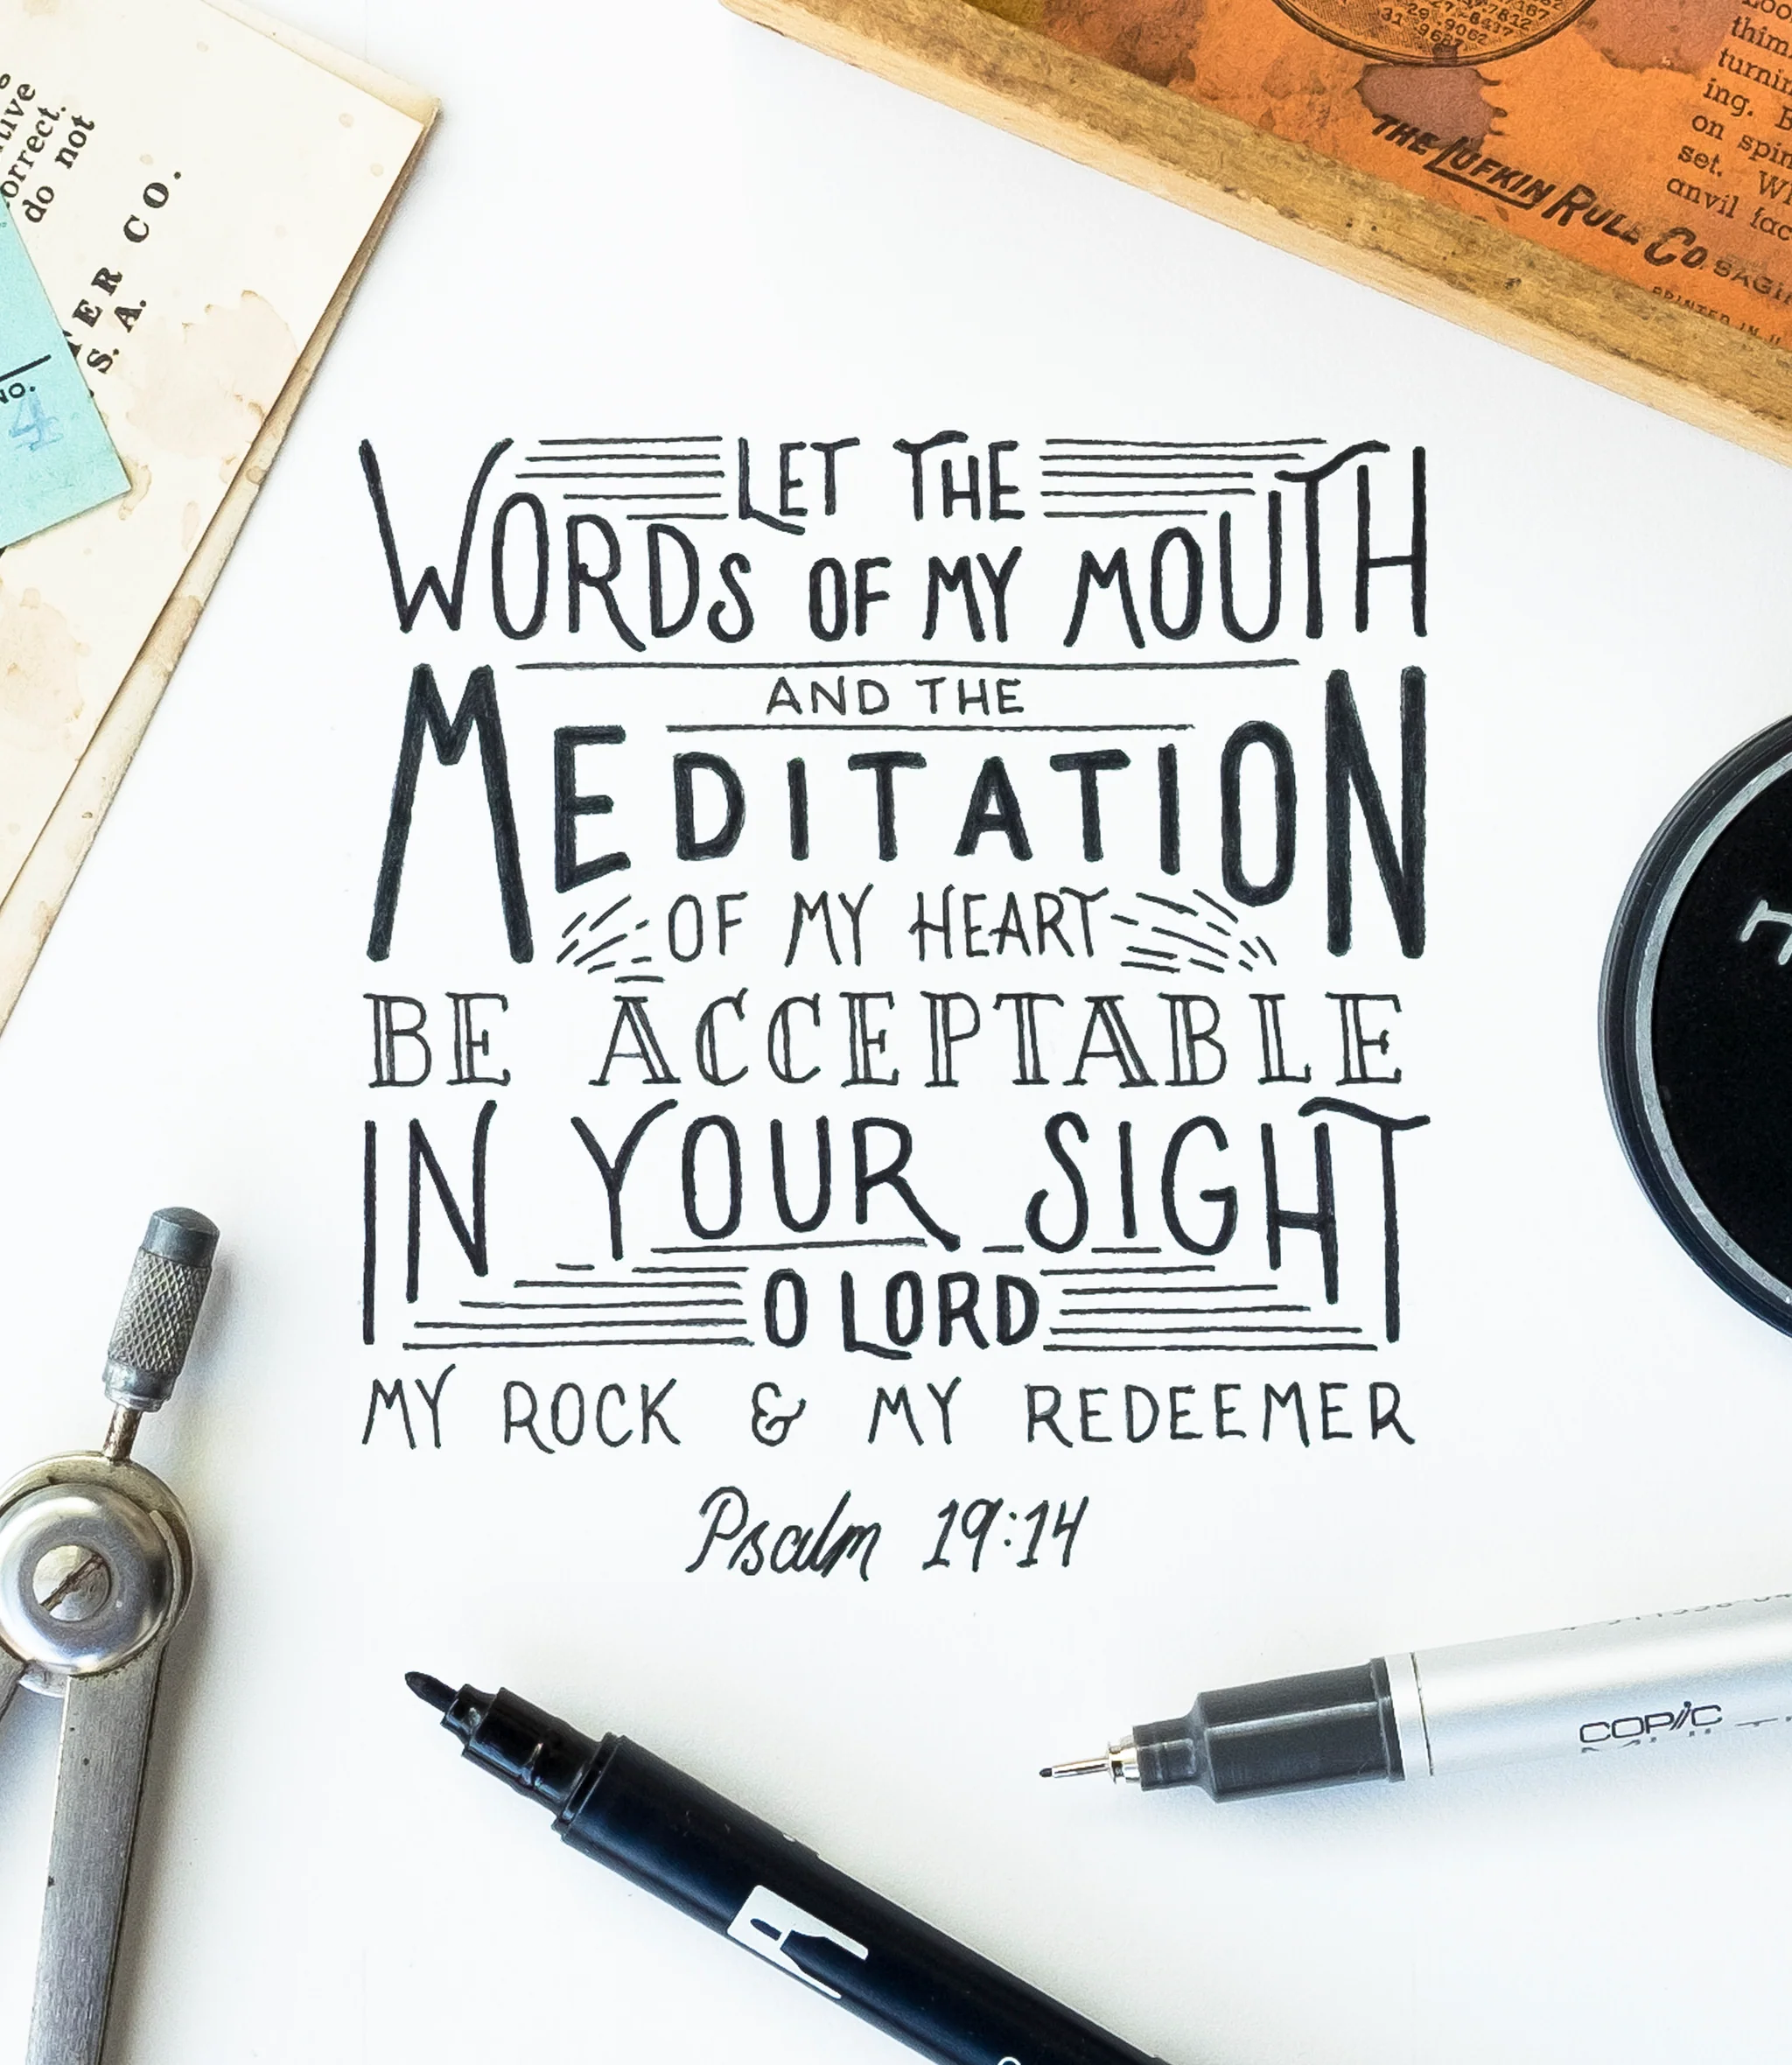 LET THE
WORDS OF MY MOUTH
AND THE
MEDITATION
OF MY HEART
BE ACCEPTABLE
IN YOUR SIGHT
O LORD
MY ROCK & MY REDEEMER
Psalm 19:14
do not
CO.
S. A.
NO.
4
29
31
THE LUFKIN RULE CO.
ing.
on
set.
anvil
PRINTED IN
COPIC